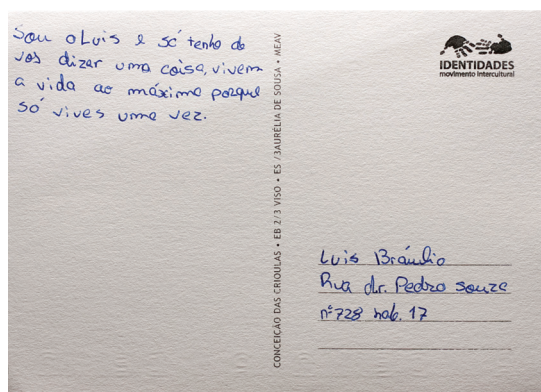 Sou o Luis e só tenho de
vos dizar uma coisa, vivem
a vida ao máximo porque
só vives uma vez.
CONCEIÇÃO DAS CRIOULAS • EB 2/3 VISO • ES /3AURÉLIA DE SOUSA • MEAV
IDENTIDADES
movimento intercultural
Luis Bráulio
Rua dr. Pedro Souza
nº 728 hab. 17